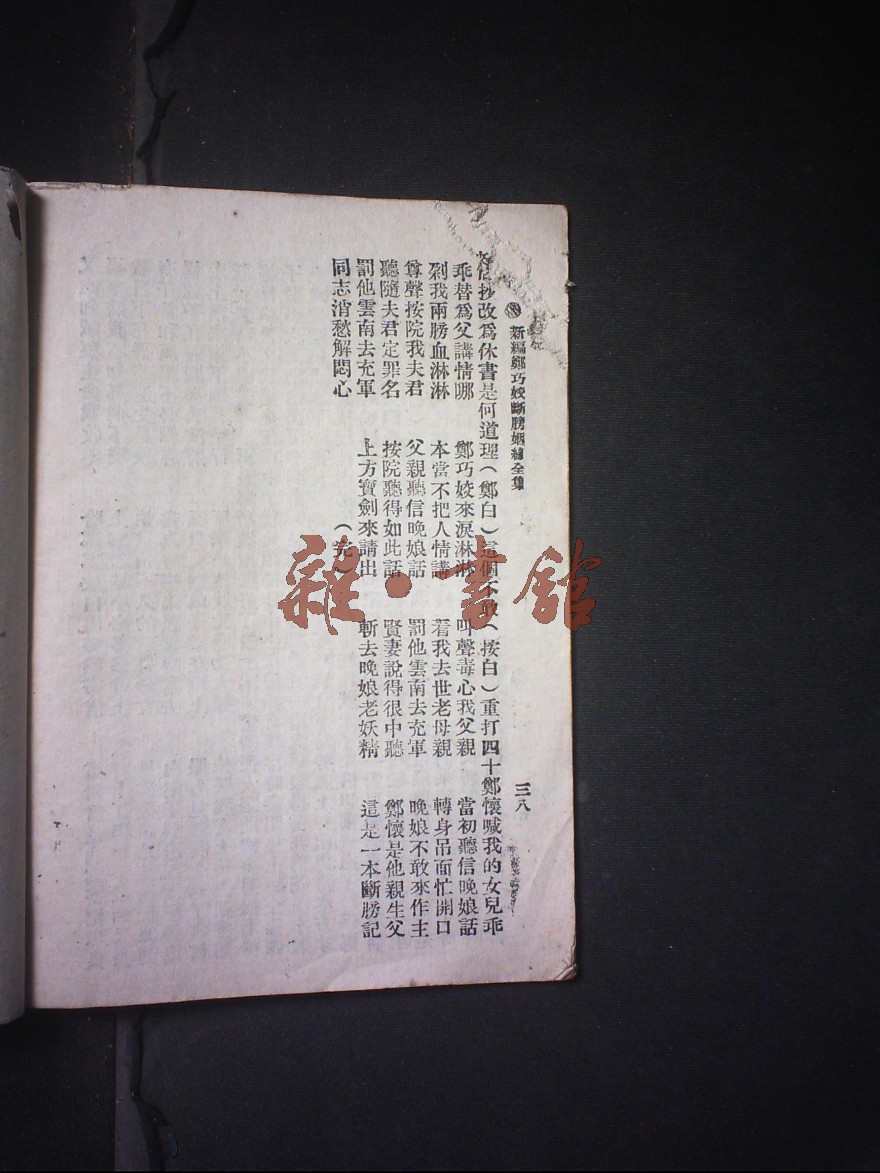 新編鄭巧姣斷膀姻緣全集
三八
抄改爲休書是何道理（鄭白）這個不敢（按白）重打四十鄭懷喊我的女兒乖
乖替爲父講情哪　鄭巧姣來淚淋淋　叫聲毒心我父親　當初聽信晚娘話
剁我兩膀血淋淋　本當不把人情講　看我去世老母親　轉身吊面忙開口
尊聲按院我夫君　父親聽信晚娘話　罰他雲南去充軍　晚娘不敢來作主
聽隨夫君定罪名　按院聽得如此話　賢妻說得很中聽　鄭懷是他親生父
罰他雲南去充軍　上方寶劍來請出　斬去晚娘老妖精　這是一本斷膀記
同志消愁解悶心　（完）
雜·書館